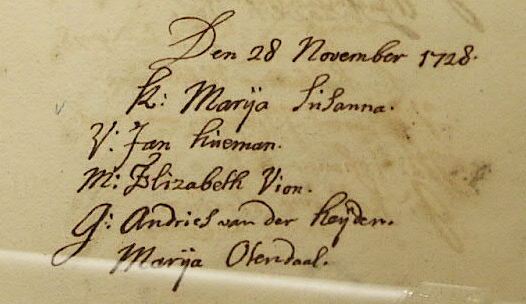 Den 28 November 1728.
K: Marija Susanna.
V: Jan Hueman.
M: Elizabeth Vion.
G: Andries van der Heijden.
Marija Olendaal.